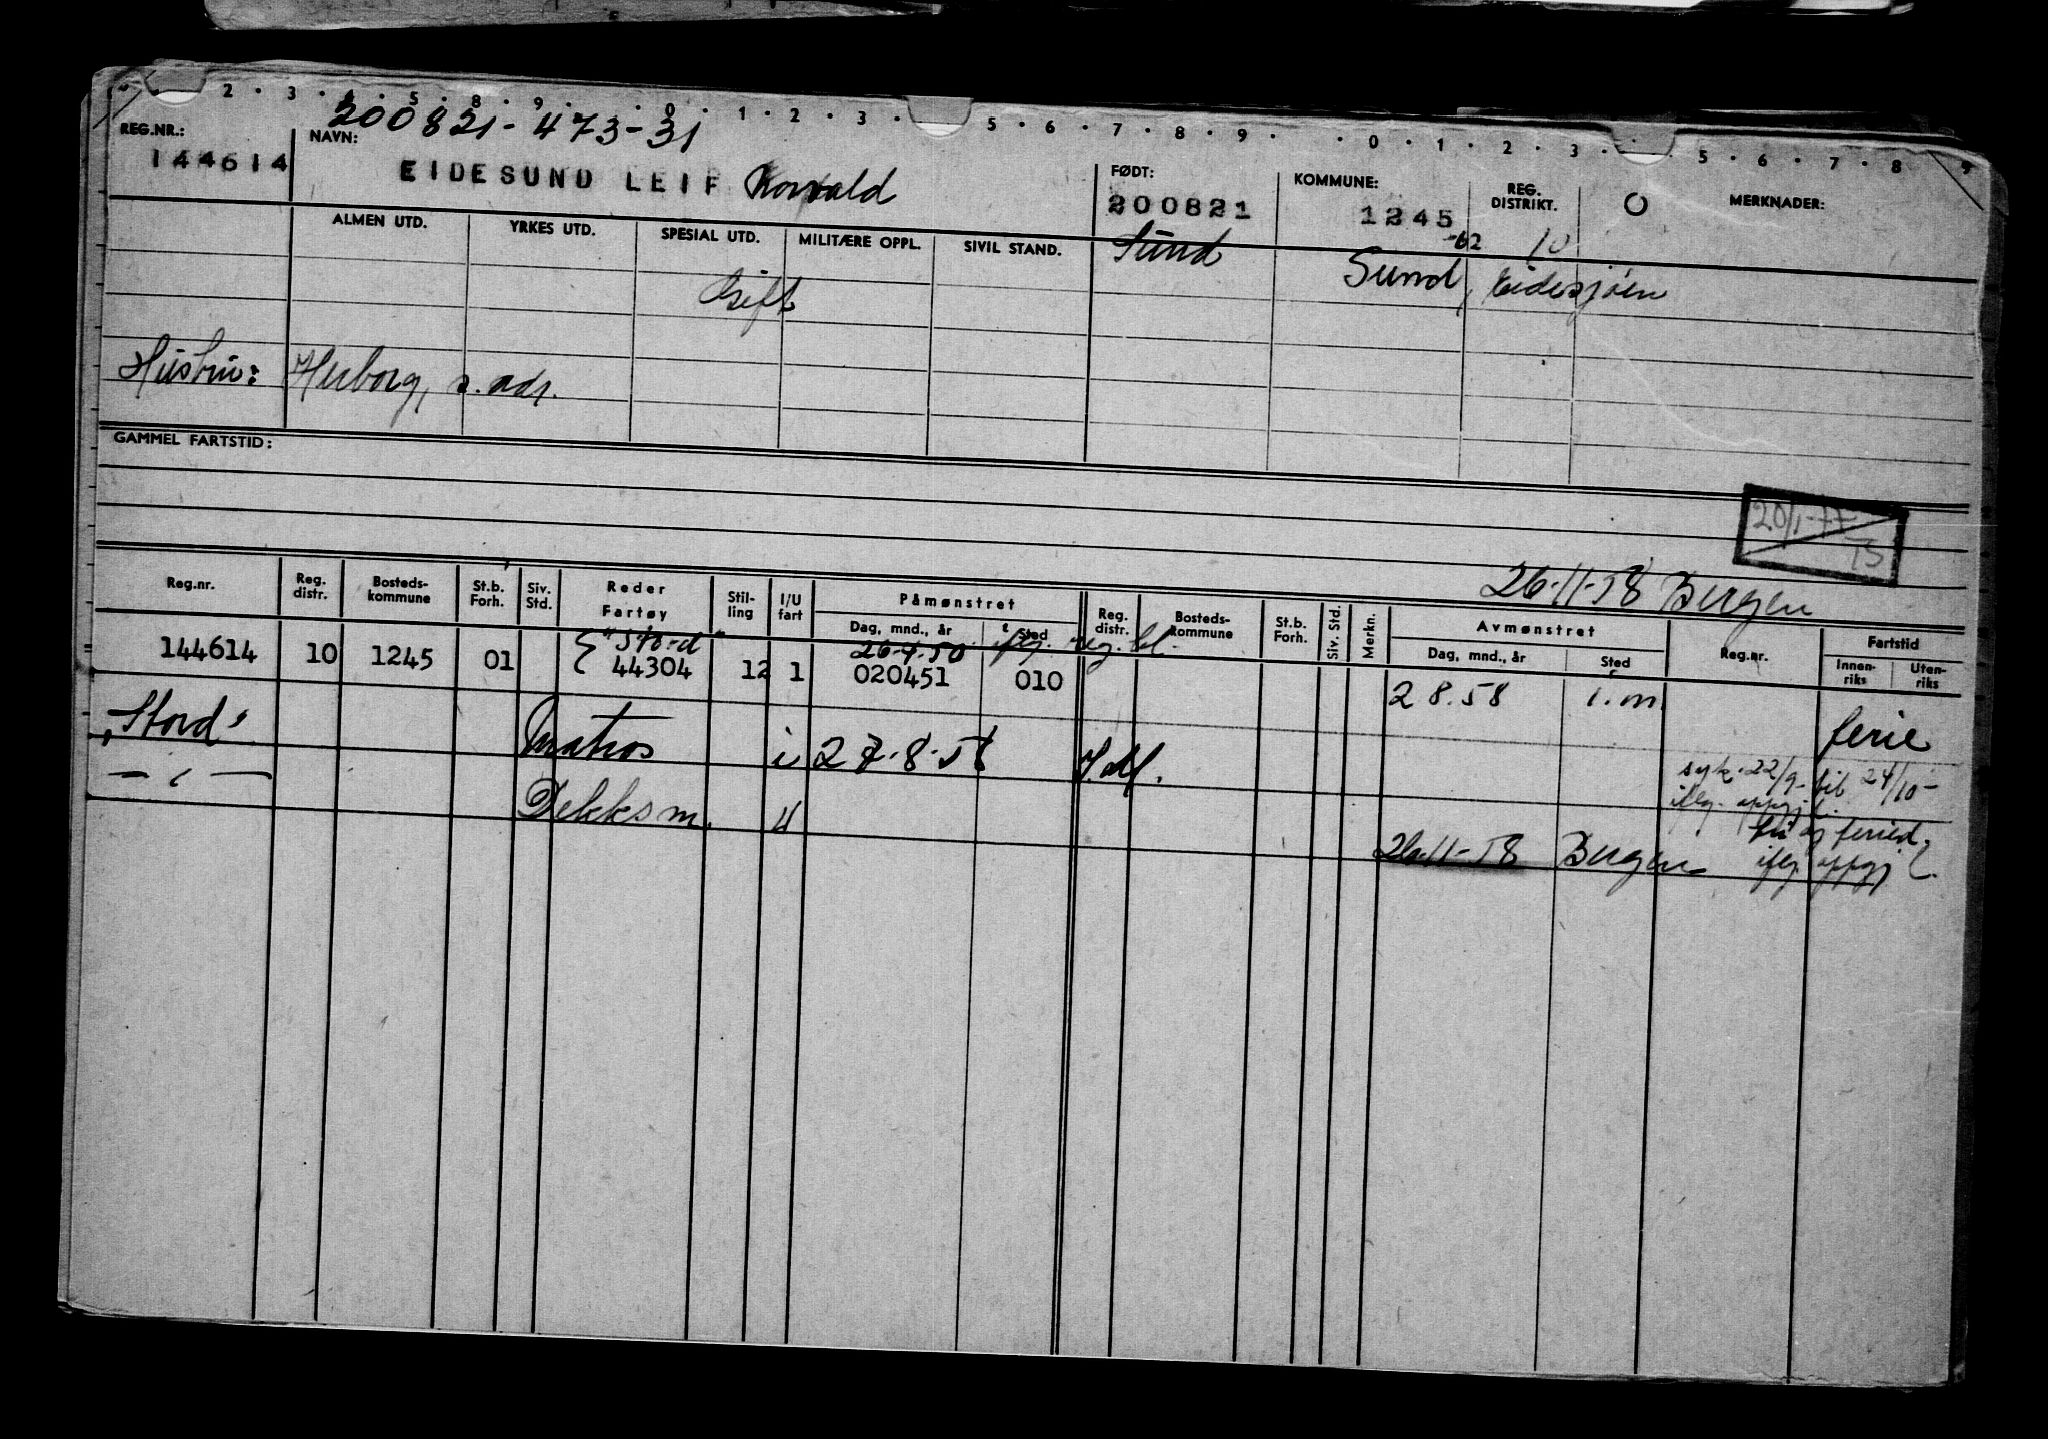 2 · 3 · 4 · 5 · 8 · 9 · 0 · 1 · 2 · 3 · 5 · 6 · 7 · 8 · 9 · 0 · 1 · 2 · 3 · 5 · 6 · 7 · 8 · 9
200821-473-31
REG.NR.: NAVN: FØDT: KOMMUNE: REG. DISTRIKT. MERKNADER:
144614 EIDESUND LEIF 200821 1245 -62 10
ALMEN UTD. YRKES UTD. SPESIAL UTD. MILITÆRE OPPL. SIVIL STAND. Sund Sund, Eidesjøen
Gift
Hustru: Herborg, s. adr.
GAMMEL FARTSTID:
20/1-77
TS
26-11-58 Bergen
Reg.nr. Reg. distr. Bosteds-kommune St.b. Forh. Siv. Std. Reder Fartøy Stil-ling I/U fart Påmønstret Dag, mnd., år Sted Reg. distr. Bosteds-kommune St.b. Forh. Siv. Std. Merkn. Avmønstret Dag, mnd., år Sted Reg.nr. Fartstid Innen-riks Uten-riks
"Stord" 26-4-50 iflg. reg. bl.
144614 10 1245 01 44304 12 1 020451 010 2 8.58 i.m.
"Stord" Matros i 27-8-58 I.M. ferie
syk. 22/9- til 24/10-
iflg. oppgj.
— " — Dekksm. u
fri og feried.
26-11-58 Bergen iflg. oppgj.